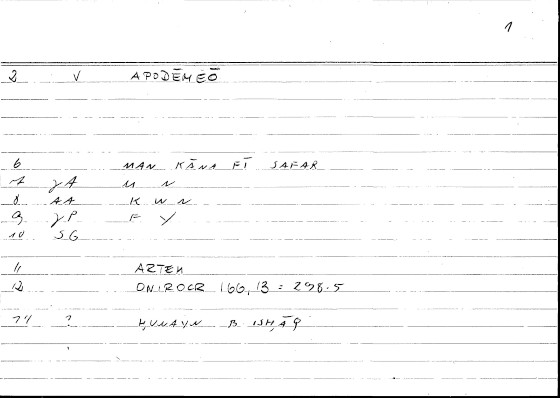 1
2 V APODĒMEŌ
6 MAN KĀNA FĪ SAFAR
7 γA M N
8 AA K W N
9 γP F Y
10 SG
11 ARTEM
12 ONIROCR 166,13 = 298.5
14 ? ḤUNAYN B ISḤĀQ